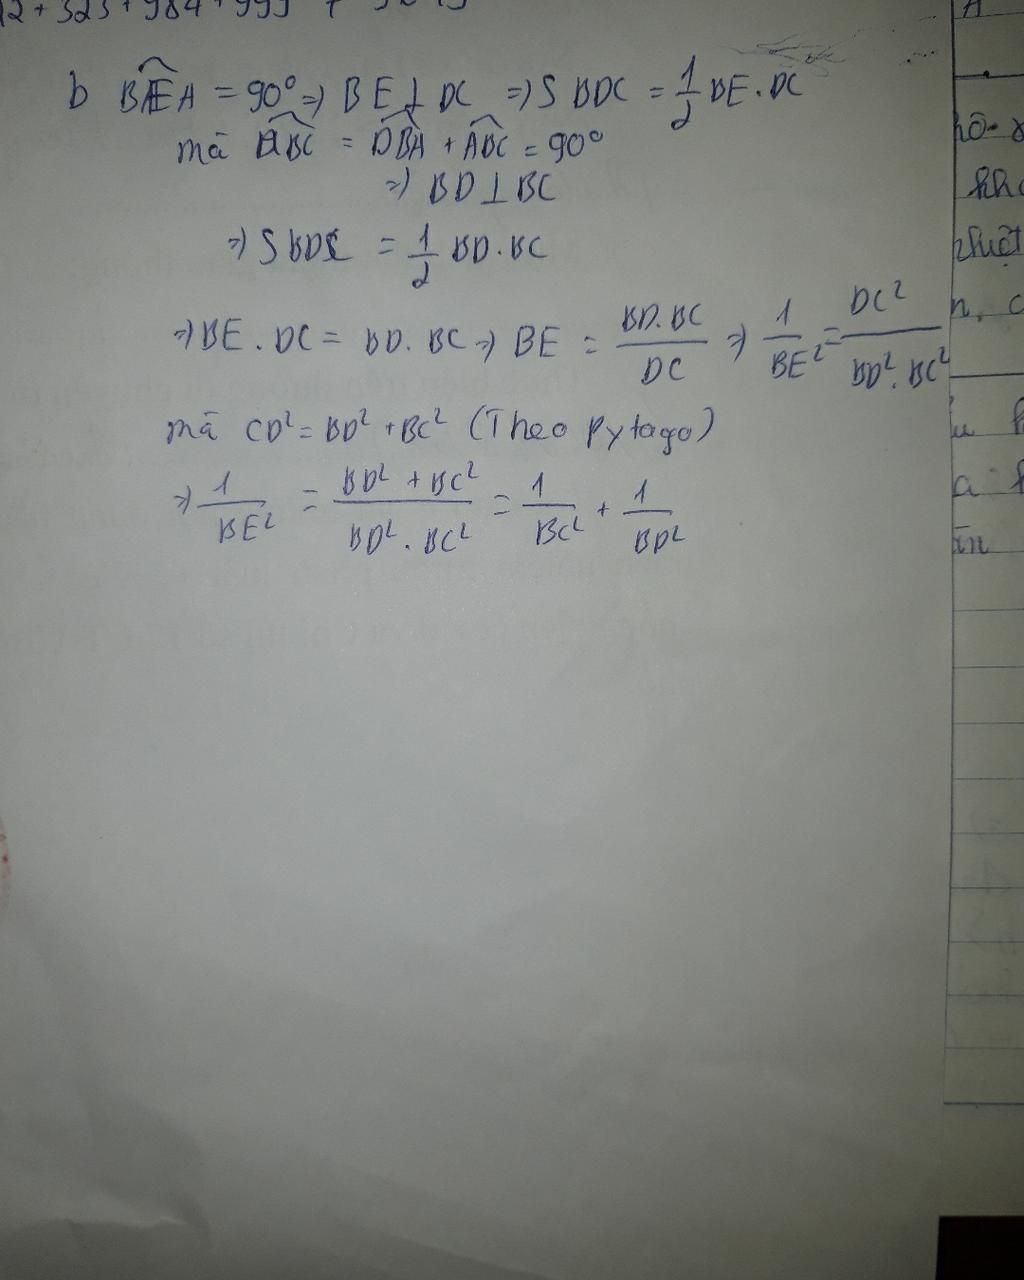 12+323+984+999
b BEA = 90° => BE⊥DC => S BDC = 1/2 BE.DC
mà DBC = DBA + ABC = 90°
=> BD⊥BC
=> S BDC = 1/2 BD.BC
=> BE.DC = BD.BC => BE = BD.BC/DC => 1/BE² = DC²/BD².BC²
mà CD² = BD² + BC² (Theo Pytago)
=> 1/BE² = BD² + BC²/BD².BC² = 1/BC² + 1/BD²